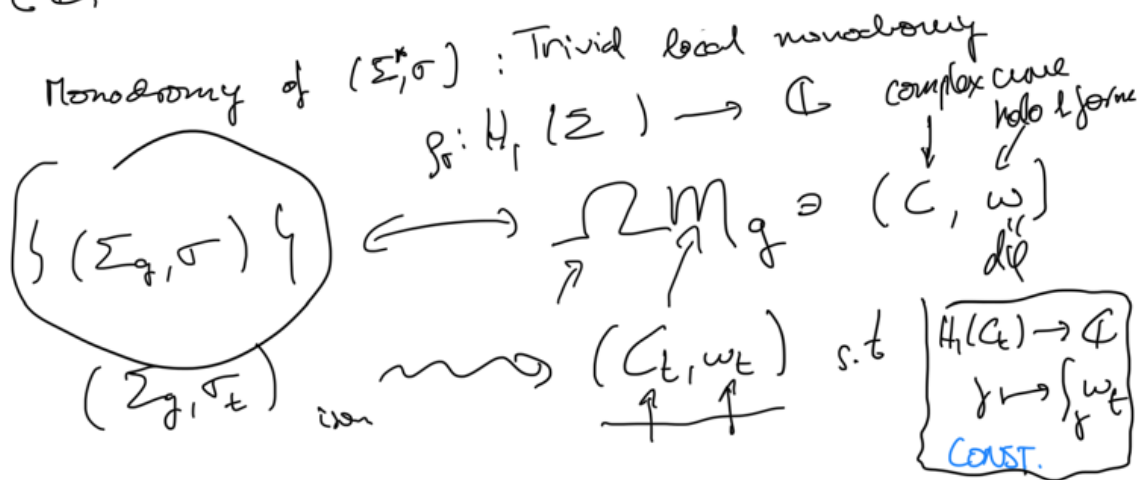 Monodromy of (Σ*,σ) : Trivial local monodromy
ρσ: H₁ (Σ) → ℂ
complex curve
holo 1 forme
{ (Σg,σ) } ↔ ΩMg ∋ (C, ω)
dφ
(Σg, σt) ison ⇝ (Ct, ωt) s.t
H₁(Ct) → ℂ
γ ↦ ∫γ ωt
CONST.